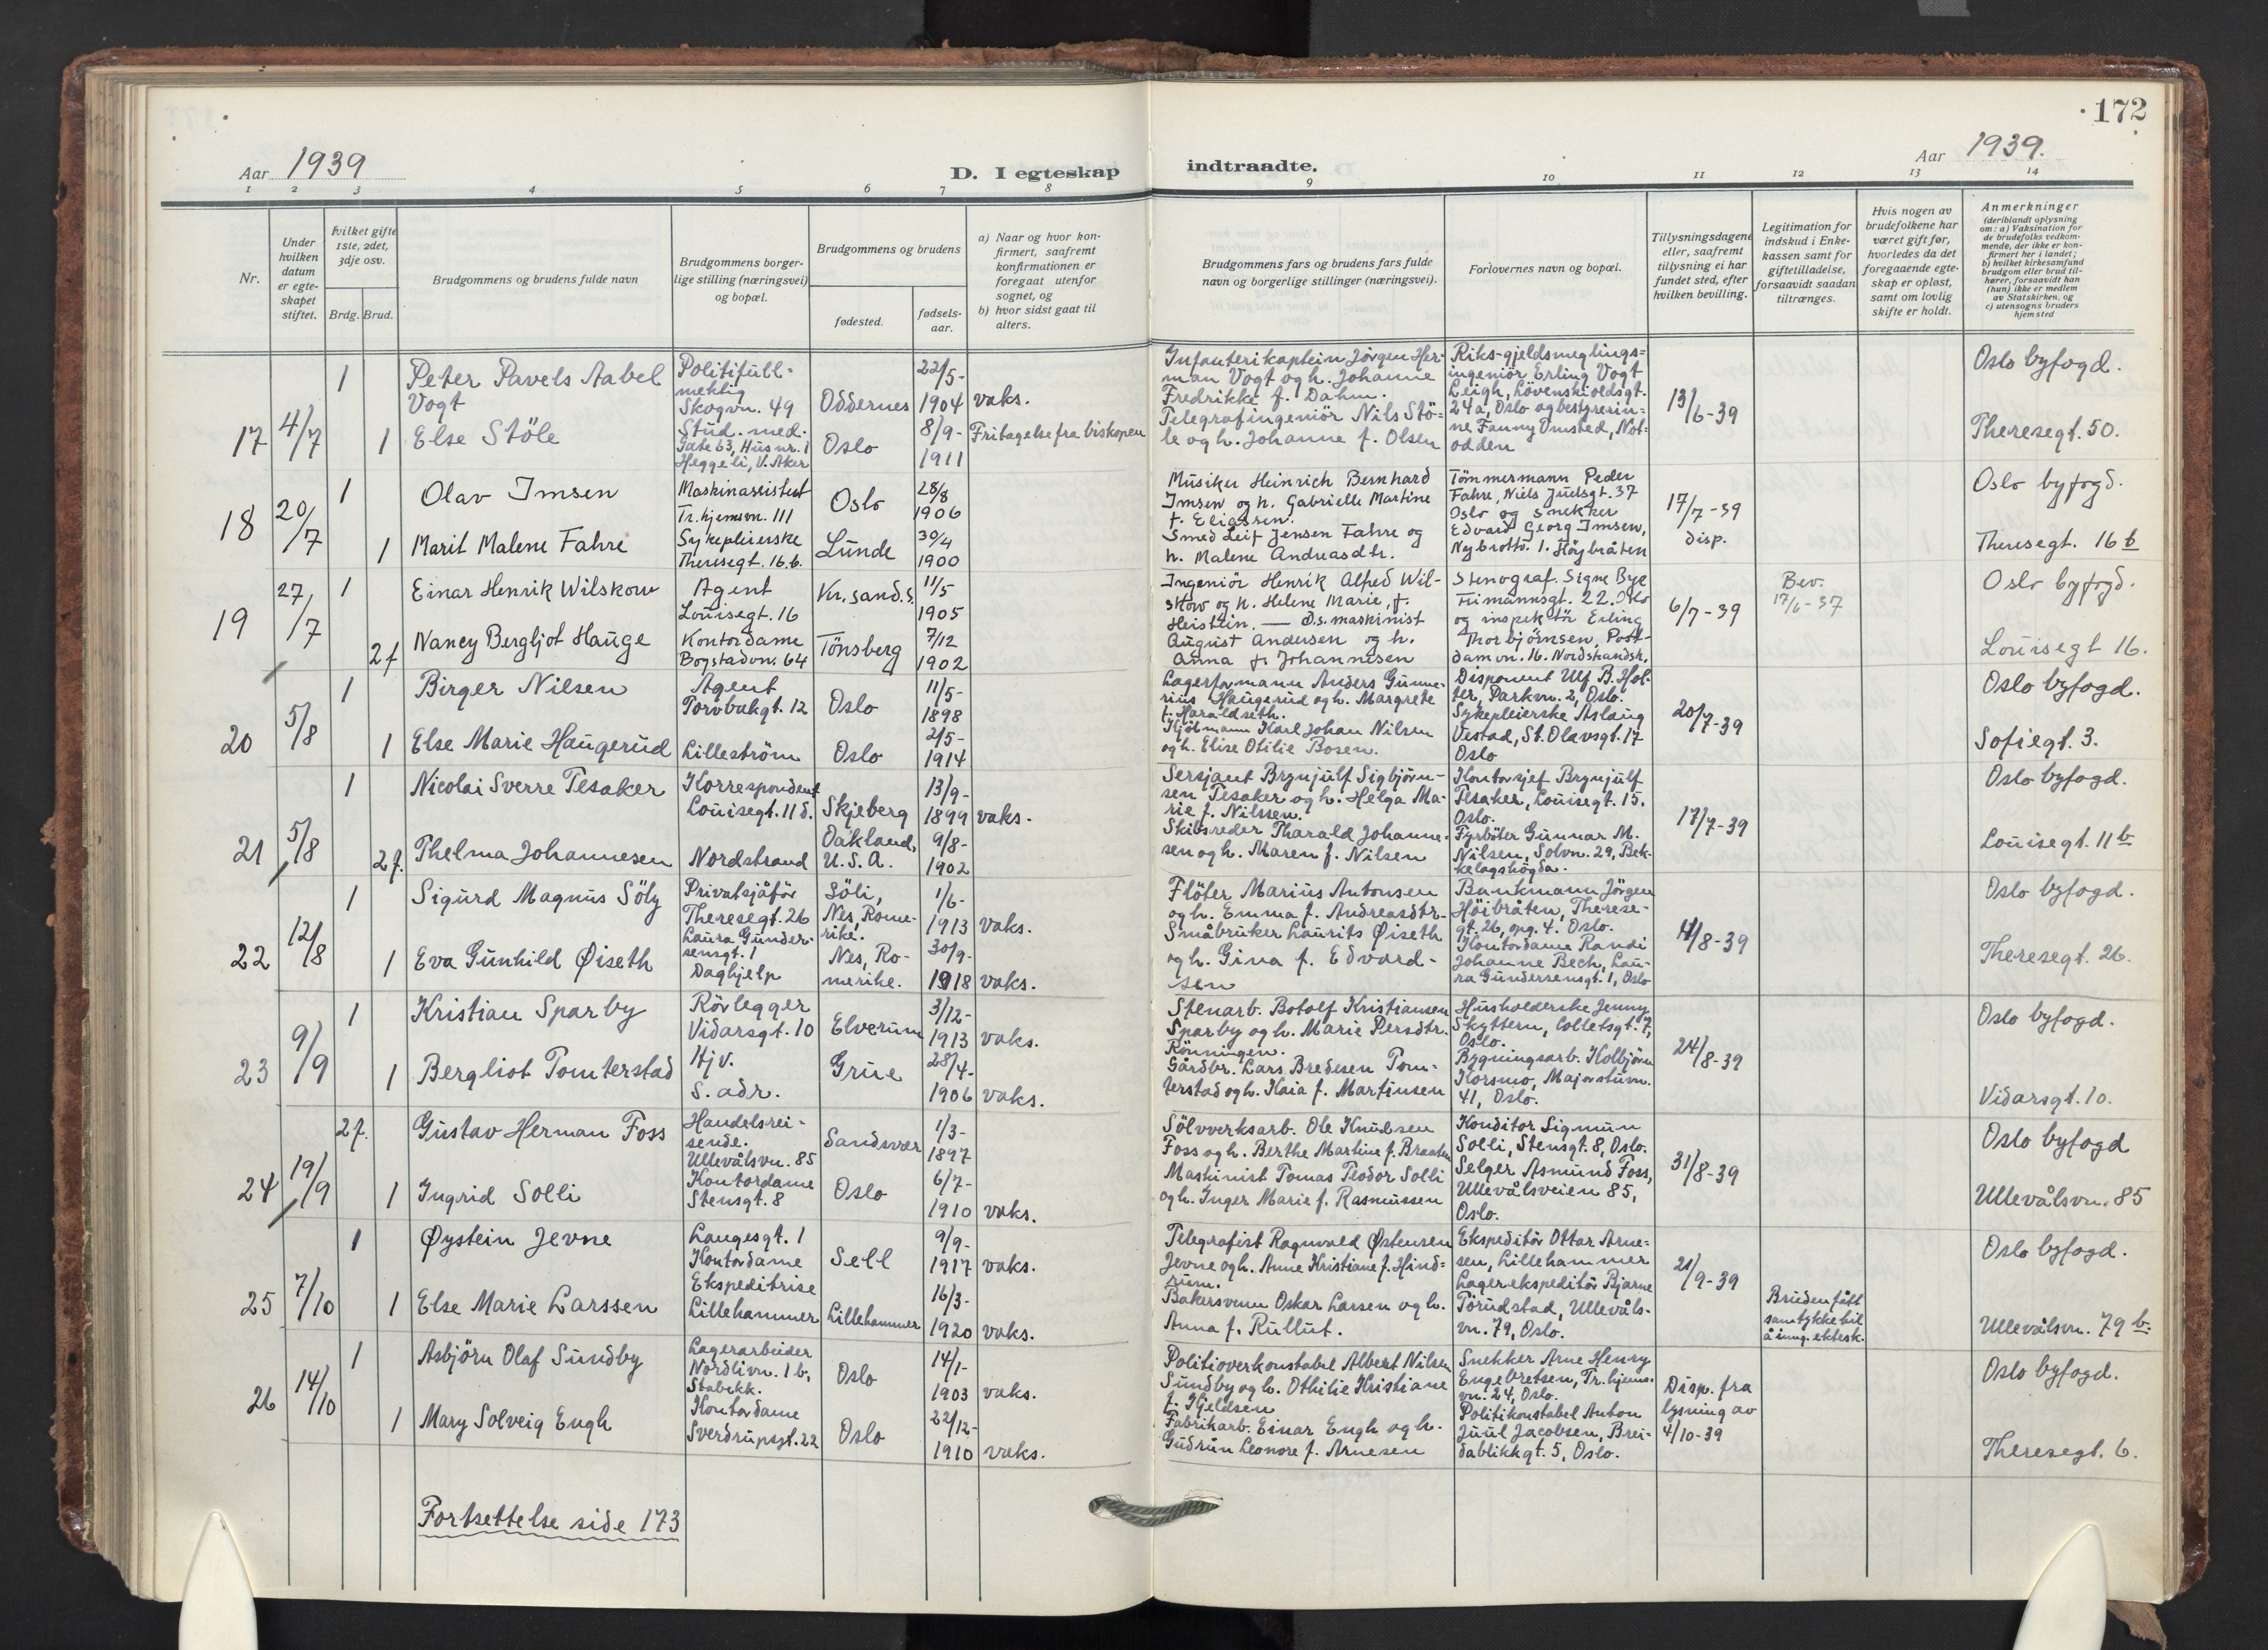 172
Aar 1939
D. I egteskap indtraadte.
Aar 1939.
1 2 3 4 5 6 7 8 9 10 11 12 13 14
Nr.
Under hvilken datum er egteskapet stiftet.
Hvilket gifte 1ste, 2det, 3dje osv.
Brdg. Brud.
Brudgommens og brudens fulde navn
Brudgommens borgerlige stilling (næringsvei) og bopæl.
Brudgommens og brudens
fødested.
fødselsaar.
a) Naar og hvor konfirmert, saafremt konfirmationen er foregaat utenfor sognet, og
b) hvor sidst gaat til alters.
Brudgommens fars og brudens fars fulde navn og borgerlige stillinger (næringsvei).
Forlovernes navn og bopæl.
Tillysningsdagene eller, saafremt tillysning ei har fundet sted, efter hvilken bevilling.
Legitimation for indskud i Enkekassen samt for giftetilladelse, forsaavidt saadan tiltrænges.
Hvis nogen av brudefolkene har været gift før, hvorledes da det foregaaende egteskap er opløst, samt om lovlig skifte er holdt.
Anmerkninger (deriblandt oplysning om: a) Vaksination for de brudefolks vedkommende, der ikke er konfirmert her i landet; b) hvilket kirkesamfund brudgom eller brud tilhører, forsaavidt han (hun) ikke er medlem av Statskirken, og c) utensogns bruders hjemsted
17
4/7
1
Peter Pavels Aabel
Vogt
Politifull-
mektig
Skogvn. 49
Oddernes
22/5-
1904
vaks.
1
Else Stöle
Stud. med.
Gate 63, Hus nr. 1
Heggeli, V. Aker
Oslo
8/9-
1911
Fritagelse fra biskopen
Infanterikaptein Jörgen Her-
man Vogt og h. Johanne
Fredrikke f. Dahm.
Telegrafingeniör Nils Stö-
le og h. Johanne f. Olsen
Riks-gjeldsmeglings-
ingeniör Erling Vogt
Leigh, Lövenskioldsgt.
24a, Oslo og bestyrerin-
ne Fanny Omsted, Not-
odden
13/6-39
Oslo byfogd.
Theresegt. 50.
18
20/7
1
Olav Imsen
Maskinassistent
Tr.hjemsvn. 111
Oslo
28/8
1906
1
Marit Malene Fahre
Sykepleierske
Theresegt. 16.b.
Lunde
30/4
1900
Musiker Heinrich Bernhard
Imsen og h. Gabrielle Martine
f. Eliassen.
Smed Leif Jensen Fahre og
h. Malene Andreasdtr.
Tömmermann Peder
Fahre, Niels Juelsgt. 37
Oslo og snekker
Edvard Georg Imsen,
Nybrottv. 1. Höybråten
17/7-39
disp.
Oslo byfogd.
Theresegt. 16 b
19
27/7
1
Einar Henrik Wilskow
Agent
Louisegt. 16
Kr.sand.S.
11/5
1905
2 f
Nancy Bergljot Hauge
Kontordame
Bogstadvn. 64
Tönsberg
7/12
1902
Ingeniör Henrik Alfred Wil-
skow og h. Helene Marie, f.
Heistein. — D.s. maskinist
August Andersen og h.
Anna f. Johannesen
Stenograf. Signe Bye
Fimannsgt. 22. Oslo
og inspektör Erling
Thorbjörnsen, Post-
damvn. 16. Nordstrandsh.
6/7-39
Bev.
17/6-37
Oslo byfogd.
Louisegt 16.
20
5/8
1
Birger Nilsen
Agent
Torvbakgt. 12
Oslo
11/5-
1898
1
Else Marie Haugerud
Lilleström
Oslo
2/5-
1914
Lagerformann Anders Gunne-
rius Haugerud og h. Margrete
f. Haraldseth.
Kjöbmann Karl Johan Nilsen
og h. Elise Otilie Bosen.
Disponent Ulf B. Hol-
ter, Parkvn. 2, Oslo.
Sykepleierske Aslaug
Vestad, St. Olavsgt. 17
Oslo
20/7-39
Oslo byfogd.
Sofiegt. 3.
21
5/8
1
Nicolai Sverre Tesaker
Korrespondent
Louisegt. 11b.
Skjeberg
13/9-
1899
vaks.
2 f.
Thelma Johannesen
Nordstrand
Oakland,
U.S.A.
9/8-
1902
Sersjant Brynjulf Sigbjörn-
sen Tesaker og h. Helga Ma-
rie f. Nilssen.
Skibsreder Tharald Johanne-
sen og h. Maren f. Nilsen
Kontorsjef Brynjulf
Tesaker, Louisegt. 15.
Oslo.
Fyrböter Gunnar M.
Nilsen, Solvn. 29, Bek-
kelagshögda.
17/7-39
Oslo byfogd.
Louisegt. 11 b
22
12/8
1
Sigurd Magnus Söly
Privatsjåför
Theresegt. 26
Söli,
Nes, Rome-
rike.
1/6-
1913
vaks.
1
Eva Gunhild Øiseth
Laura Gunder-
sensgt. 1
Daghjelp
Nes, Ro-
merike.
30/9-
1918
vaks.
Flöter Marius Antonsen
og h. Emma f. Andreasdtr.
Småbruker Laurits Øiseth
og h. Gina f. Edvard-
sen
Bankmann Jörgen
Höibråten, Therese-
gt. 26, opg. 4. Oslo.
Kontordame Randi
Johanne Bech, Lau-
ra Gundersensgt. 1, Oslo
11/8-39
Oslo byfogd.
Theresegt. 26.
23
9/9
1
Kristian Sparby
Rörlegger
Vidarsgt. 10
Elverum
3/12-
1913
vaks.
1
Bergliot Tomterstad
Hjv.
S. adr.
Grue
28/4-
1906
vaks.
Stenarb. Botolf Kristiansen
Sparby og h. Marie Persdtr.
Rönningen.
Gårdbr. Lars Bredesen Tom-
terstad og h. Kaia f. Martinsen
Husholderske Jenny
Skyttern, Colletsgt. 7,
Oslo.
Bygningsarb. Kolbjörn
Korsmo, Majorstuvn.
41, Oslo.
24/8-39
Oslo byfogd.
Vidarsgt. 10.
24
19/9
2 f.
Gustav Herman Foss
Handelsrei-
sende.
Ullevålsvn. 85
Sandsvær
1/3-
1897
1
Ingrid Solli
Kontordame
Stensgt. 8
Oslo
6/7-
1910
vaks.
Sölvverksarb. Ole Knudsen
Foss og h. Berthe Martine f. Braaten
Maskinist Tomas Teodor Solli
og h. Inger Marie f. Rasmussen
Konditor Sigmun
Solli, Stensgt. 8, Oslo.
Selger Asmund Foss,
Ullevålsveien 85,
Oslo.
31/8-39
Oslo byfogd
Ullevålsvn. 85
25
7/10
1
Øystein Jevne
Langesgt. 1
Kontordame
Sell
9/9-
1917
vaks.
1
Else Marie Larssen
Ekspeditrise
Lillehammer
Lillehammer
16/3-
1920
vaks.
Telegrafist Ragnvald Østensen
Jevne og h. Anne Kristiane f. Hind-
rum.
Bakersvenn Oskar Larsen og h.
Anna f. Rullut.
Ekspeditör Ottar Arne-
sen, Lillehammer
Lagerekspeditör Bjarne
Torudstad, Ullevåls-
vn. 79, Oslo.
21/9-39
Bruden fått
samtykke til
å inng. ektesk.
Oslo byfogd.
Ullevålsvn. 79 b.
26
14/10
1
Asbjörn Olaf Sundby
Lagerarbeider
Nordlivn. 1 b,
Stabekk.
Oslo
14/1-
1903
vaks.
1
Mary Solveig Engh
Kontordame
Sverdrupsgt. 22
Oslo
22/12-
1910
vaks.
Politioverkonstabel Albert Nilsen
Sundby og h. Othilie Kristiane
f. Kjeldsen
Fabrikarb. Einar Engh og h.
Gudrun Leonore f. Arnesen
Snekker Arne Henry
Engebretsen, Tr.hjems-
vn. 24, Oslo.
Politikonstabel Anton
Juul Jacobsen, Brei-
dablikkgt. 5, Oslo.
Disp. fra
lysning av
4/10-39
Oslo byfogd.
Theresegt. 6.
Fortsettelse side 173